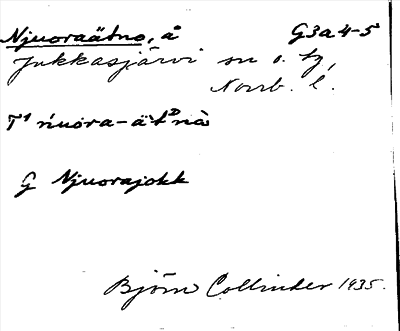 Njuoraätno, å G3a4-5
Jukkasjärvi sn o. tg,
Norrb. l.
T¹ ńuora-ätᴰnȧ
G Njuorajokk
Björn Collinder 1935.